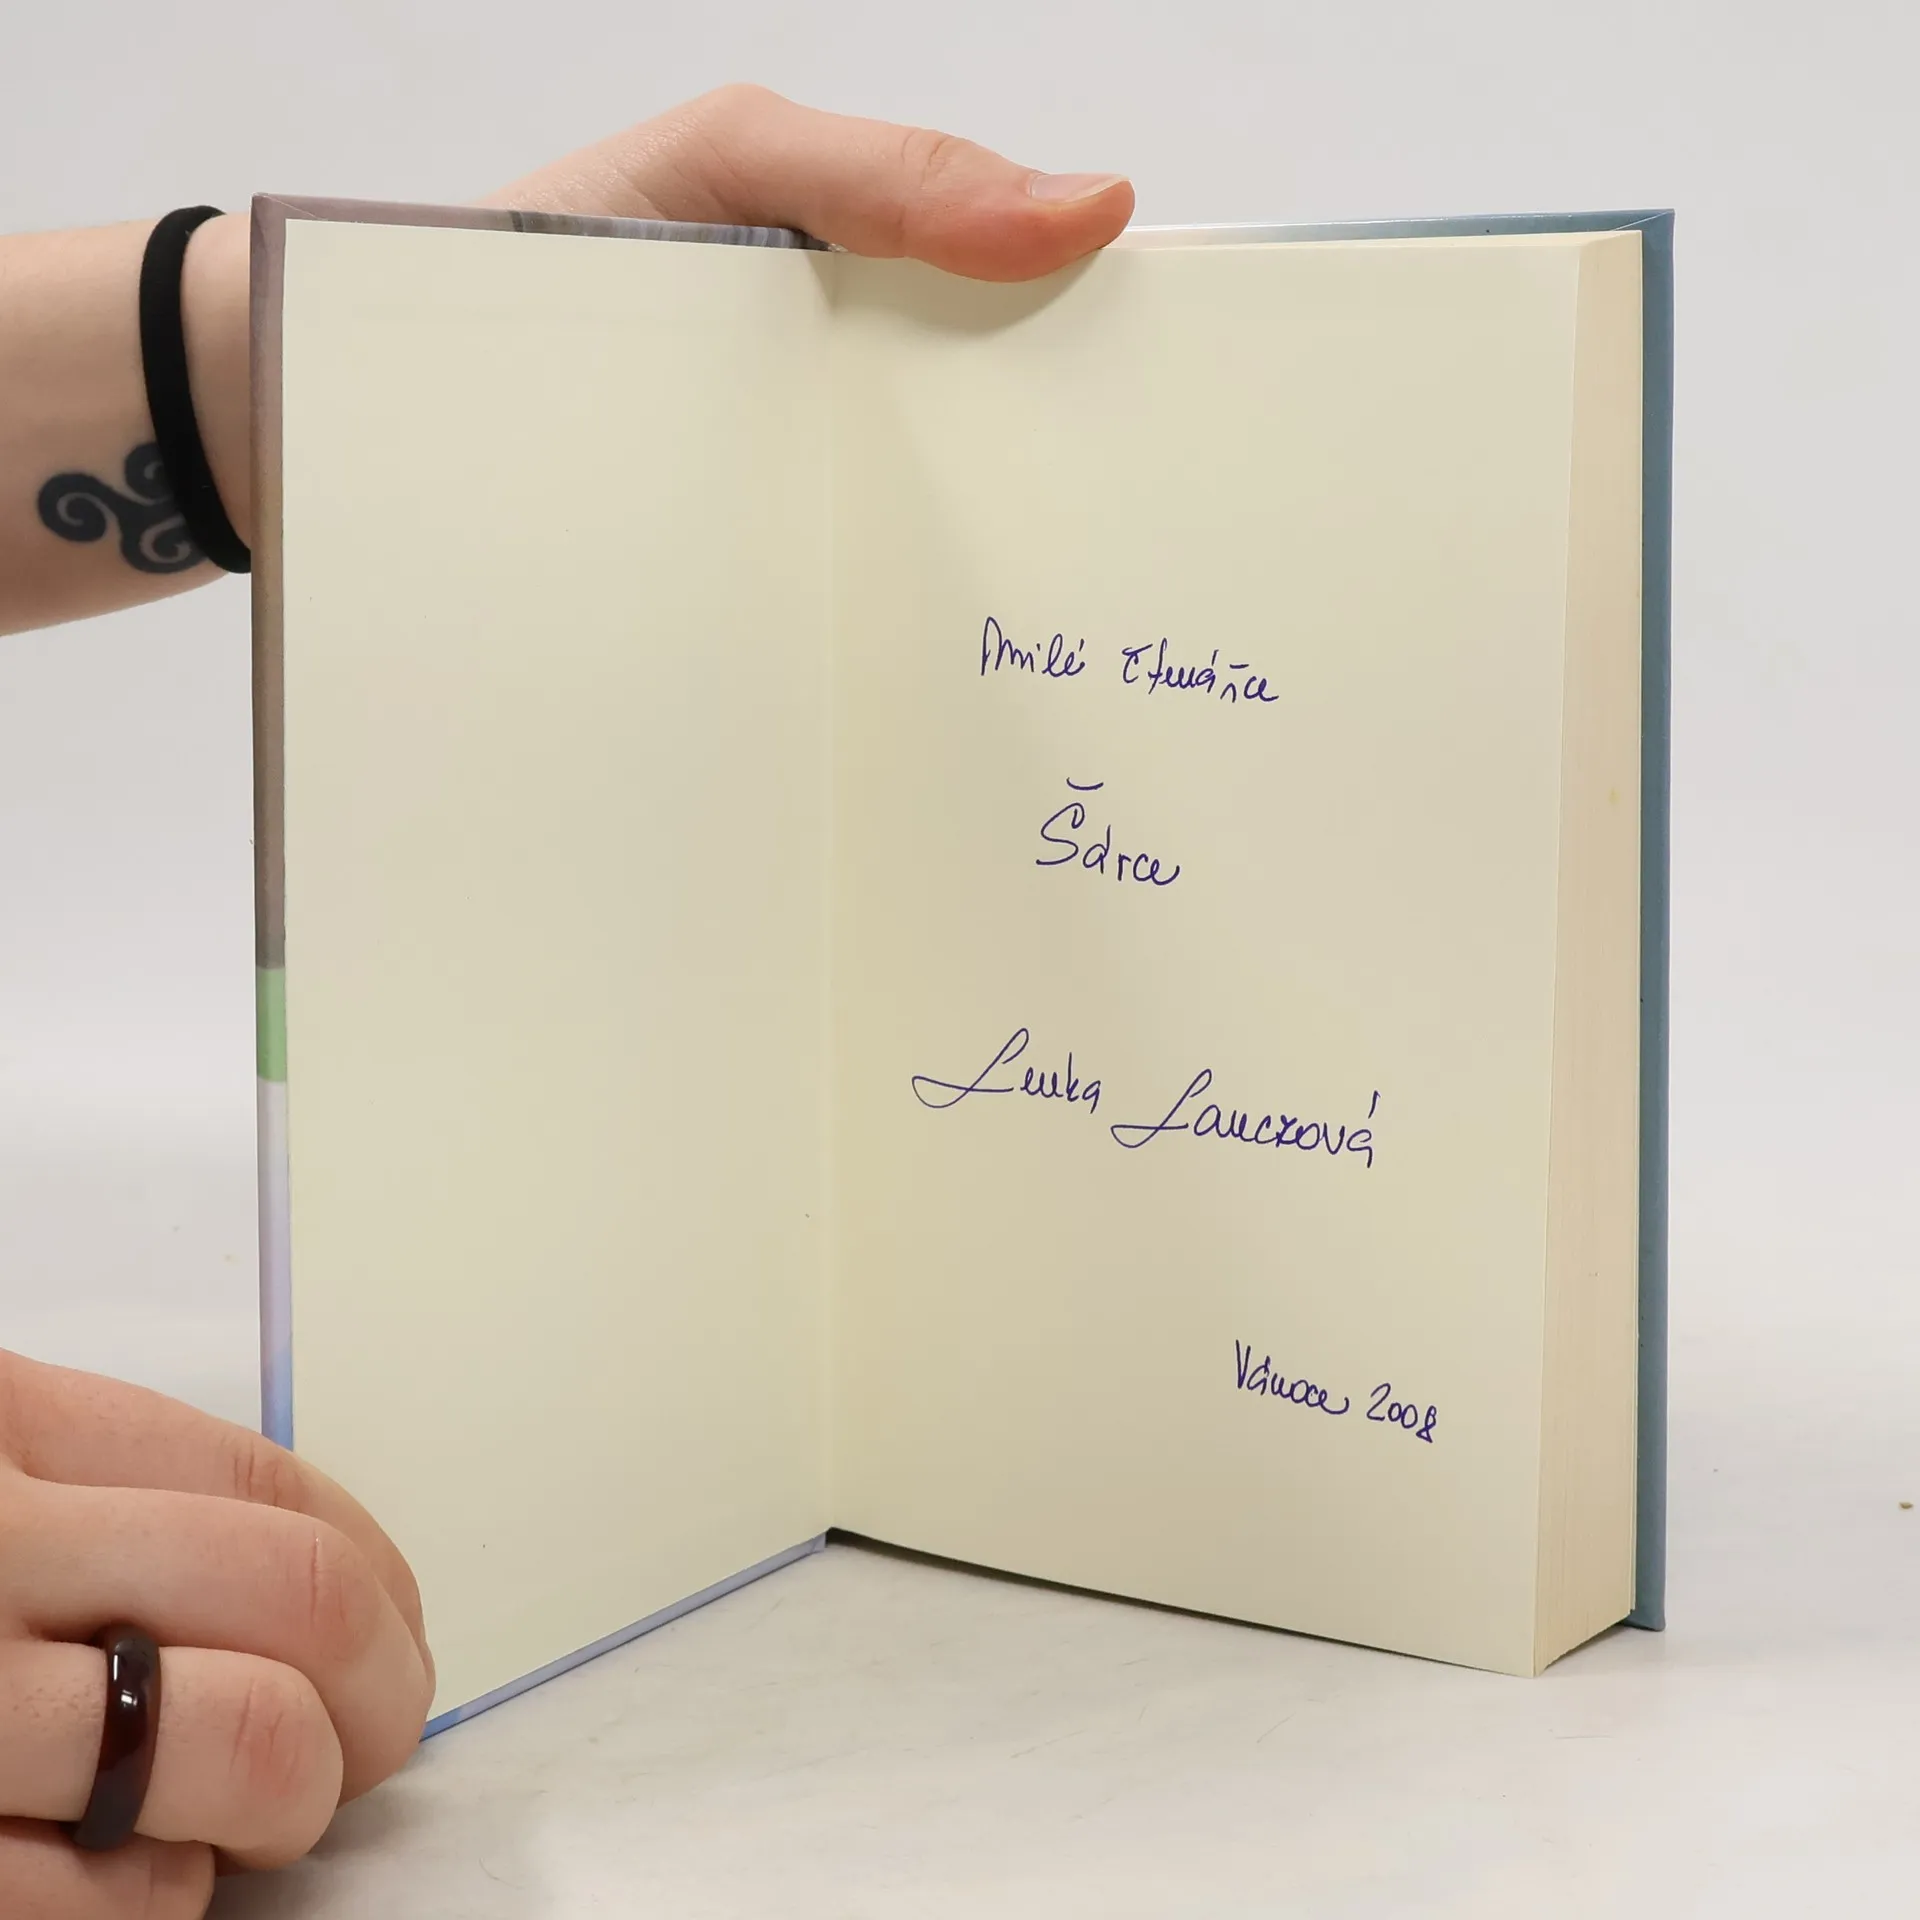 Milé čtenářce
Šárce
Lenka Lanczová
Vánoce 2008